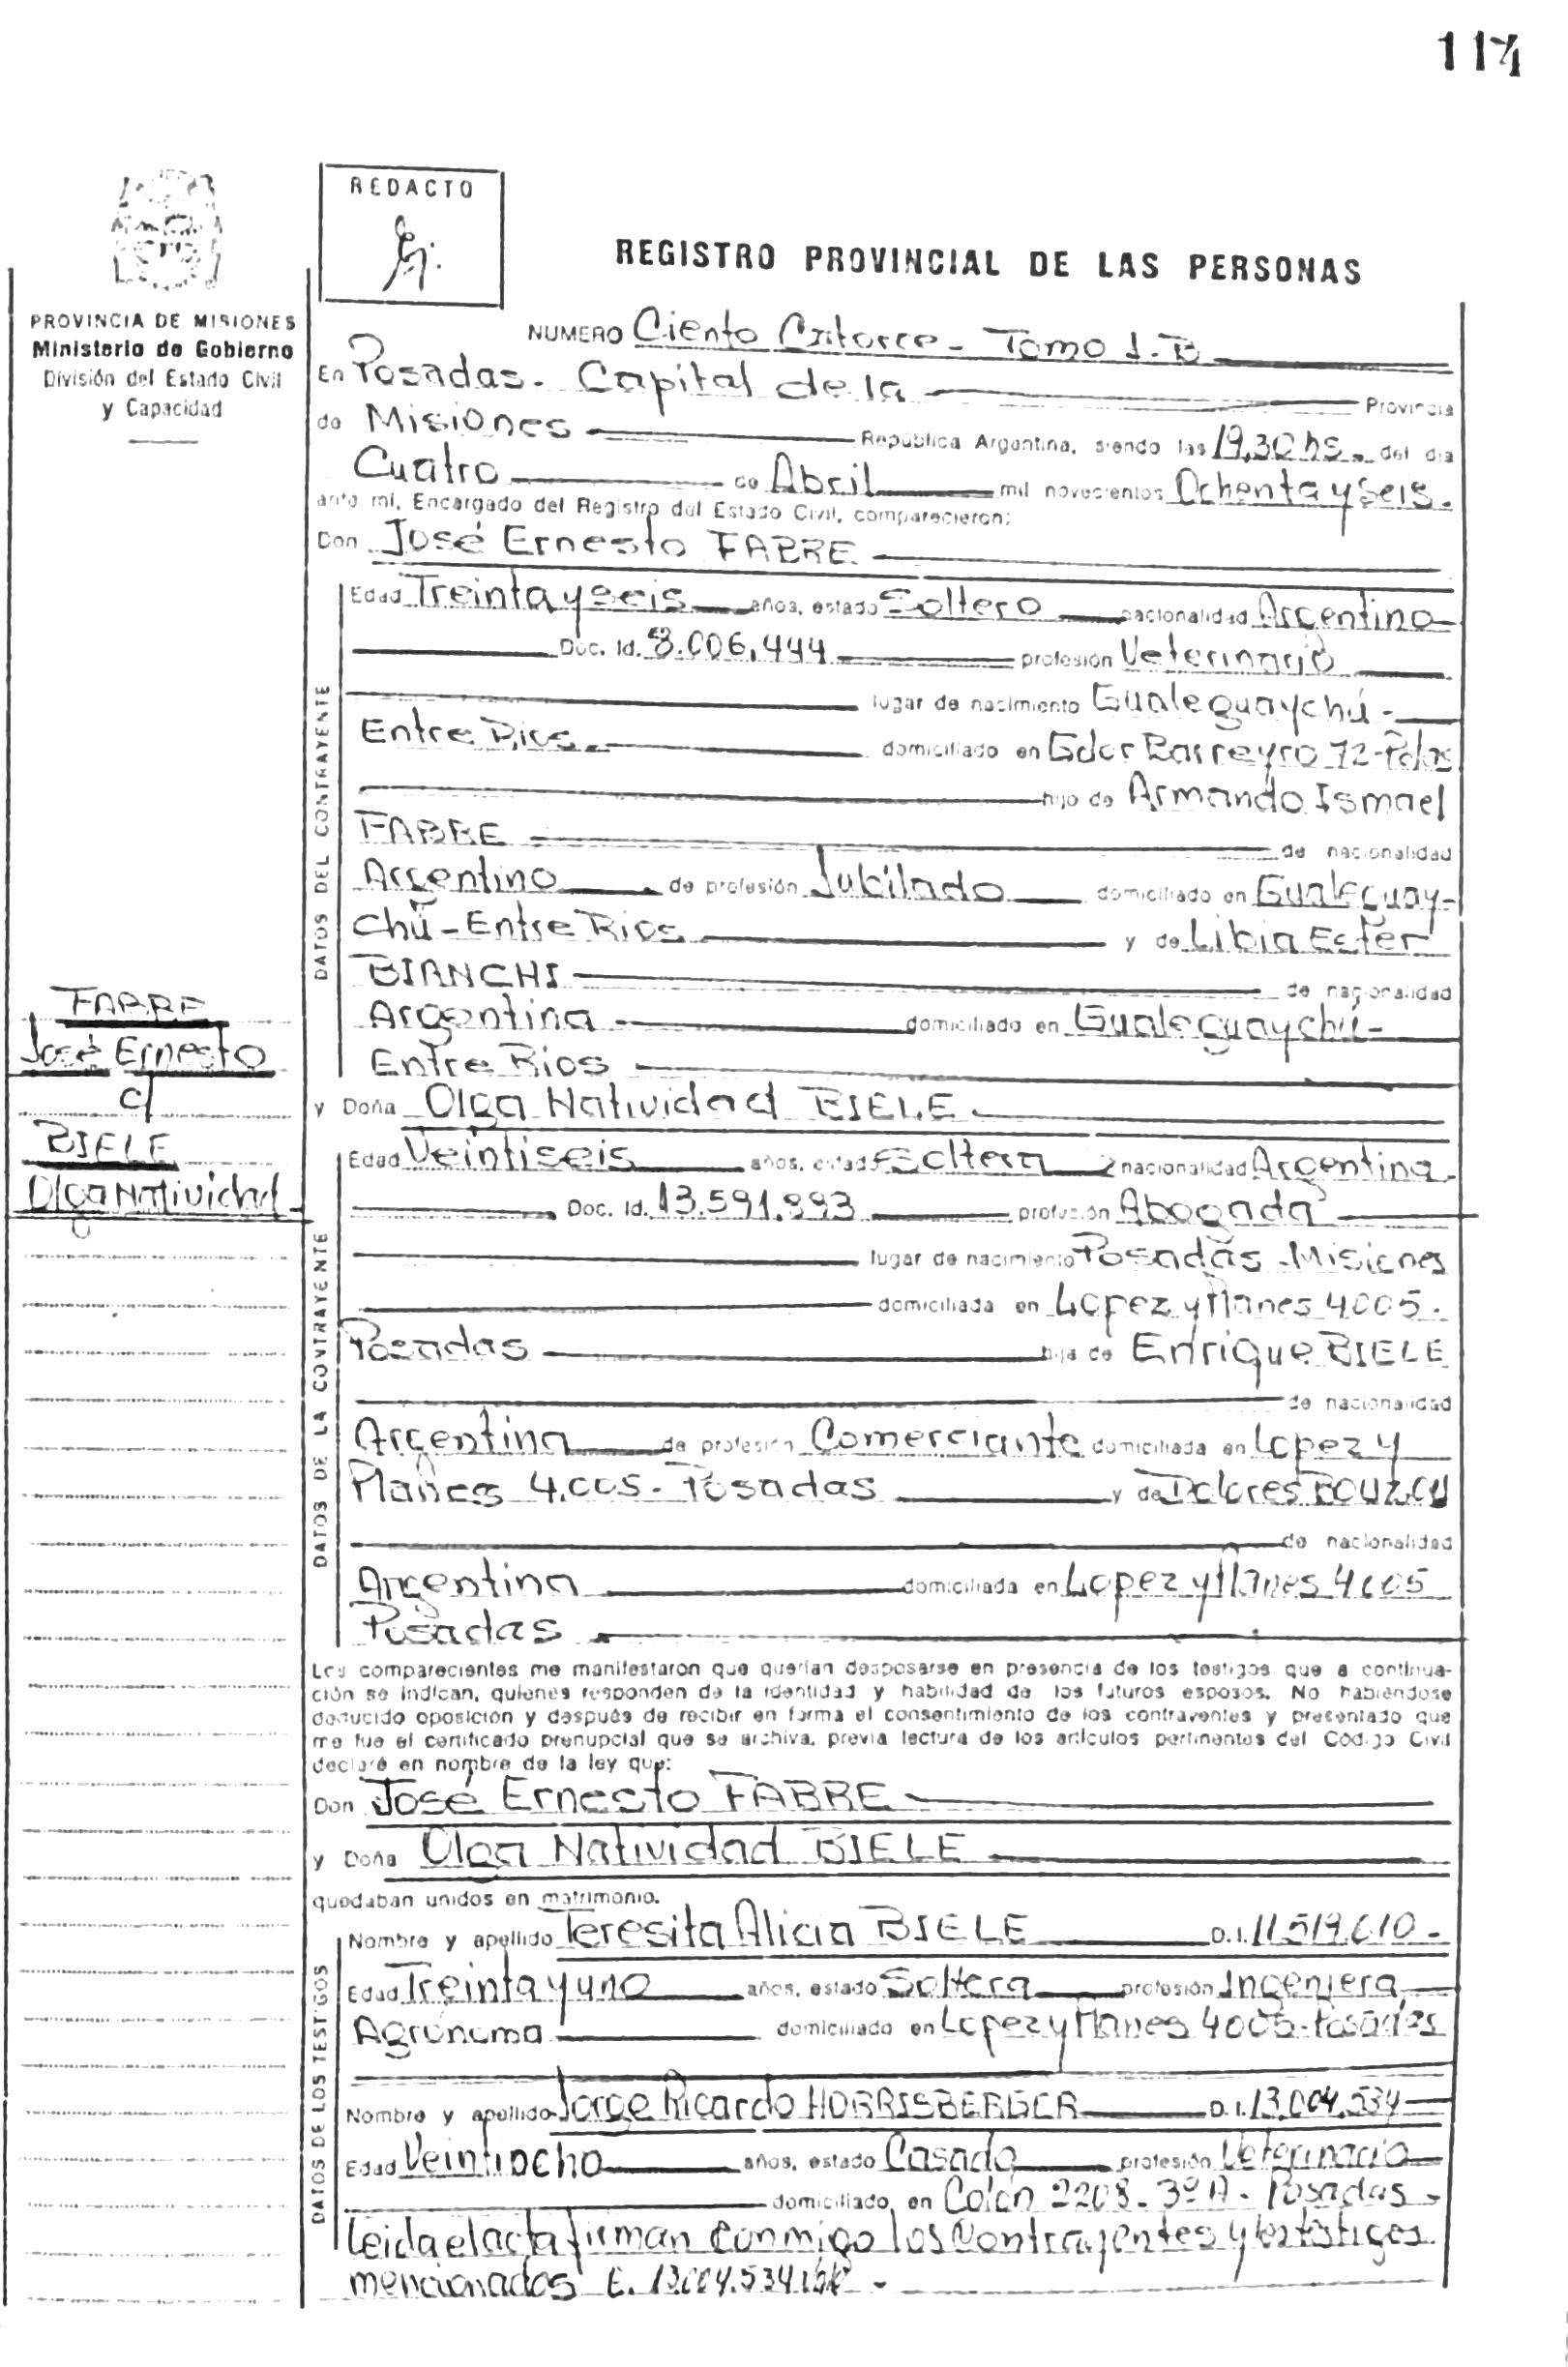 114
REDACTO
REGISTRO PROVINCIAL DE LAS PERSONAS
PROVINCIA DE MISIONES
Ministerio de Gobierno
División del Estado Civil
y Capacidad
NUMERO Ciento Catorce - Tomo 1-B
En Posadas. Capital de la Provincia
de Misiones República Argentina, siendo las 19,30 hs. del dia
Cuatro de Abril mil novecientos Ochenta y Seis.
ante mi, Encargado del Registro del Estado Civil, comparecieron:
Don José Ernesto FABRE
DATOS DEL CONTRAYENTE
Edad Treinta y seis años, estado Soltero nacionalidad Argentino
Doc. Id. 8.006.444 profesión Veterinario
lugar de nacimiento Gualeguaychú -
Entre Rios domiciliado en Gdor Barreyro 72-Pdas
hijo de Armando Ismael
FABRE de nacionalidad
Argentino de profesión Jubilado domiciliado en Gualeguay-
chú - Entre Rios y de Libia Ester
BIANCHI de nacionalidad
Argentina domiciliado en Gualeguaychú -
Entre Rios
FABRE
José Ernesto
c/
BIELE
Olga Natividad
y Doña Olga Natividad BIELE
DATOS DE LA CONTRAYENTE
Edad Veintiseis años, estado Soltera nacionalidad Argentina
Doc. Id. profesión Abogada
lugar de nacimiento Posadas - Misiones
domiciliada en Lopez y Planes 4005.
Posadas hija de Enrique BIELE
de nacionalidad
Argentina de profesión Comerciante domiciliada en Lopez y
Planes 4.005 - Posadas y de Dolores BOUZOU
de nacionalidad
Argentina domiciliada en Lopez y Planes 4005
Posadas
Los comparecientes me manifestaron que querían desposarse en presencia de los testigos que a continua-
ción se indican, quienes responden de la identidad y habilidad de los futuros esposos. No habiéndose
deducido oposición y después de recibir en forma el consentimiento de los contrayentes y presentado que
me fue el certificado prenupcial que se archiva, previa lectura de los artículos pertinentes del Código Civil
declaré en nombre de la ley que:
Don José Ernesto FABRE
y Doña Olga Natividad BIELE
quedaban unidos en matrimonio.
DATOS DE LOS TESTIGOS
Nombre y apellido Teresita Alicia BIELE D.I. 11.519.610 -
Edad Treinta y uno años, estado Soltera profesión Ingeniera
Agrónoma domiciliado en Lopez y Planes 4005 - Posadas
Nombre y apellido Jorge Ricardo HORRISBERGER D.I. 13.004.534
Edad Veintiocho años, estado Casado profesión Veterinario
domiciliado en Colón 2208 - 3º A - Posadas -
Leida el acta firman conmigo los Contrayentes y los testigos
mencionados E. 13.004.534